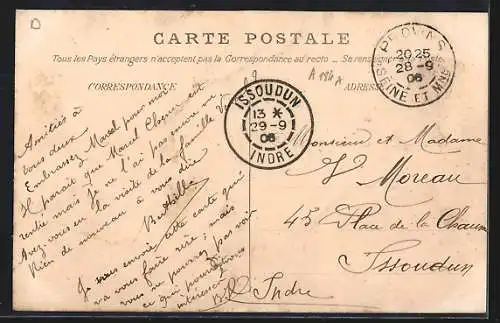 CARTE POSTALE
Tous les Pays étrangers n'acceptent pas la Correspondance au recto .. Se renseigner
CORRESPONDANCE
ADRES
A 184 A
PROVINS
20 25
28 -9
06
SEINE ET MNE
ISSOUDUN
13 *
29 -9
06
INDRE
Amitiés à
vous deux
Embrassez Marcel pour moi
Il paraît que Marcel est
rentré mais je ne l'ai pas encore vu
Avez vous eu la visite de la famille
Rien de nouveau à vous dire
Berthille
Je vous envoie cette carte qui
va vous faire rire ; mais
vous ne pourrez pas voir
ce qui pourrait vous
intéresser
B
Monsieur et Madame
V Moreau
45 Place de la Chaume
Issoudun
Indre